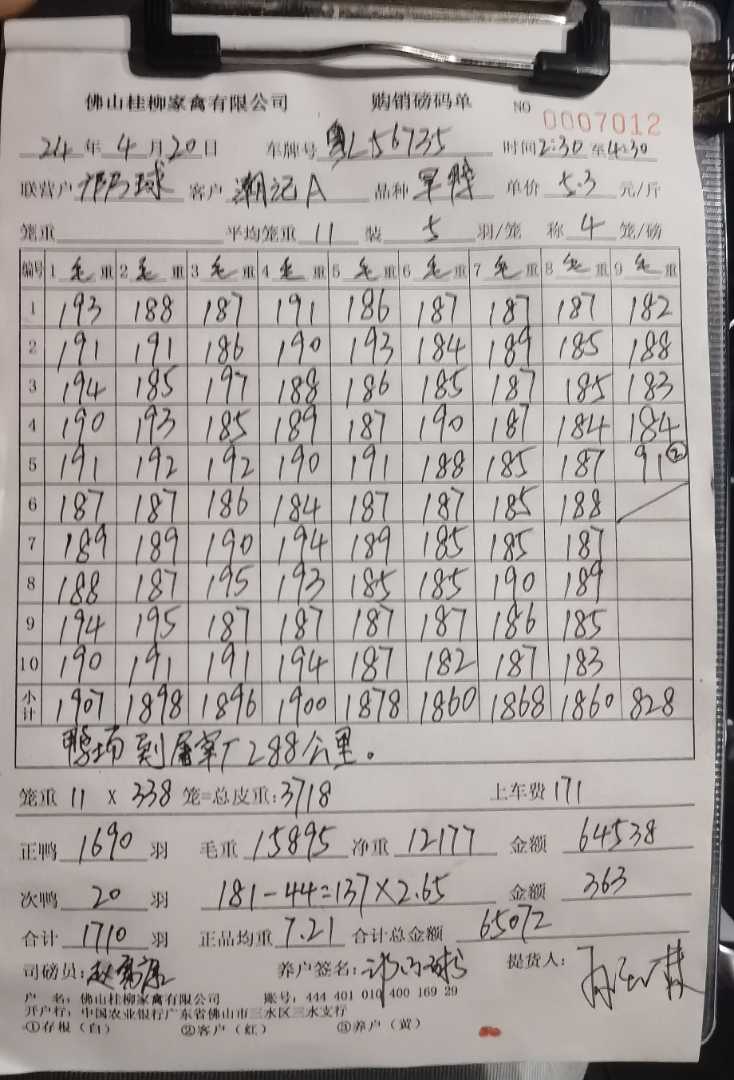 佛山桂柳家禽有限公司 购销磅码单 NO 0007012
24 年 4 月 20 日 车牌号 粤L56735 时间 2:30 至 4:30
联营户 球 客户 潮记A 品种 旱鸭 单价 5.3 元/斤
笼重 平均笼重 11 装 5 羽/笼 称 4 笼/磅
编号 1 毛 重 2 毛 重 3 毛 重 4 毛 重 5 毛 重 6 毛 重 7 毛 重 8 毛 重 9 毛 重
1 193 188 187 191 186 187 187 187 182
2 191 191 186 190 193 184 189 185 188
3 194 185 197 188 186 185 187 185 183
4 190 193 185 189 187 190 187 184 184
5 191 192 192 190 191 188 185 187 91②
6 187 187 186 184 187 187 185 188
7 189 189 190 194 189 185 185 187
8 188 187 195 193 185 185 190 189
9 194 195 187 187 187 187 186 185
10 190 191 191 194 187 182 187 183
小计 1907 1898 1896 1900 1878 1860 1868 1860 828
鸭场到屠宰厂288公里。
笼重 11 X 338 笼=总皮重:3718 上车费 171
正鸭 1690 羽 毛重 15895 净重 12177 金额 64538
次鸭 20 羽 181-44=137×2.65 金额 363
合计 1710 羽 正品均重 7.21 合计总金额 65072
司磅员: 养户签名: 提货人:
户 名: 佛山桂柳家禽有限公司 账号: 444 401 010 400 169 29
开户行: 中国农业银行广东省佛山市三水区三水支行
①存根(白) ②客户(红) ③养户(黄)